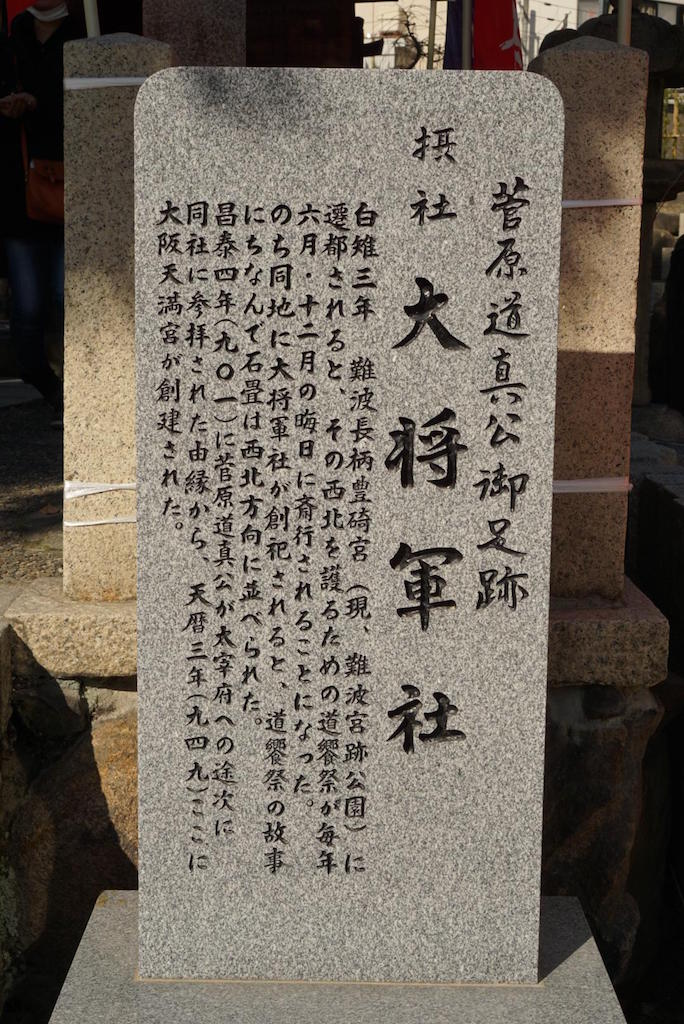 菅原道真公御足跡
摂社 大将軍社
白雉三年 難波長柄豊碕宮(現、難波宮跡公園)に
遷都されると、その西北を護るための道饗祭が毎年
六月・十二月の晦日に斎行されることになった。
のち同地に大将軍社が創祀されると、道饗祭の故事
にちなんで石畳は西北方向に並べられた。
昌泰四年(九〇一)に菅原道真公が太宰府への途次に
同社に参拝された由縁から、天暦三年(九四九)ここに
大阪天満宮が創建された。